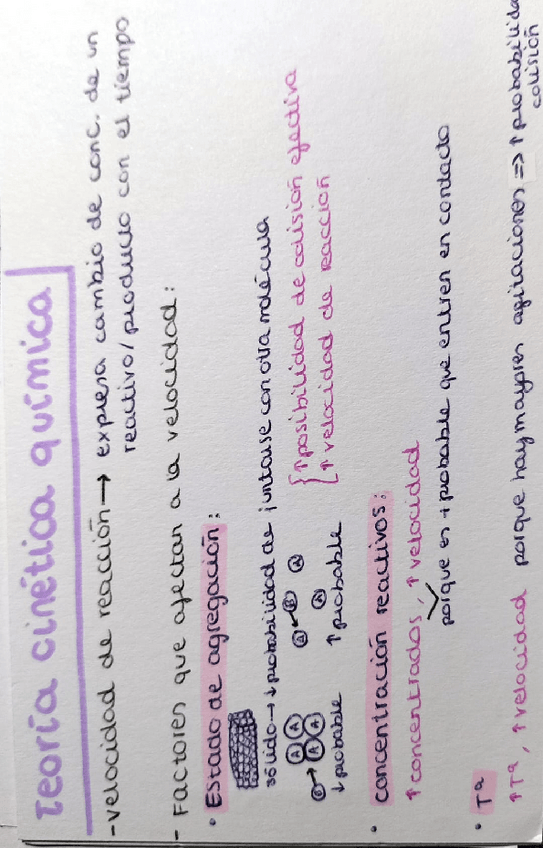 teoría cinética química
- velocidad de reacción → expresa cambio de conc. de un
reactivo/producto con el tiempo
- Factores que afectan a la velocidad:
• Estado de agregación:
sólido → ↓ probabilidad de juntarse con otra molécula
B → A A A A
B A A A
↓ probable ↑ probable
{ ↑ posibilidad de colisión efectiva
↑ velocidad de reacción
• concentración reactivos:
↑ concentrados, ↑ velocidad
porque es + probable que entren en contacto
• Tª
↑ Tª, ↑ velocidad porque hay mayores agitaciones => ↑ probabilida
colisión